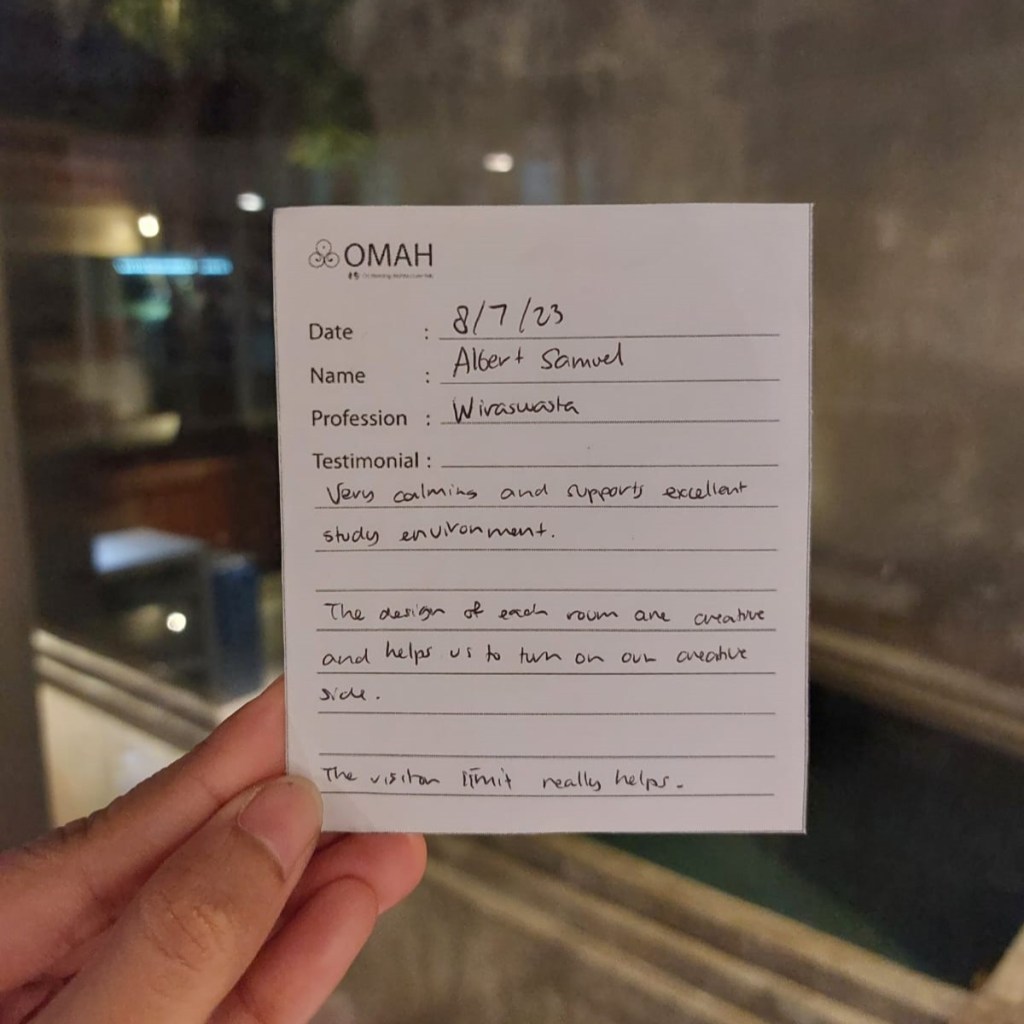 OMAH
Date : 8/7/23
Name : Albert Samuel
Profession : Wiraswasta
Testimonial :
Very calming and supports excellent
study environment.
The design of each room are creative
and helps us to turn on our creative
side.
The visitor limit really helps.